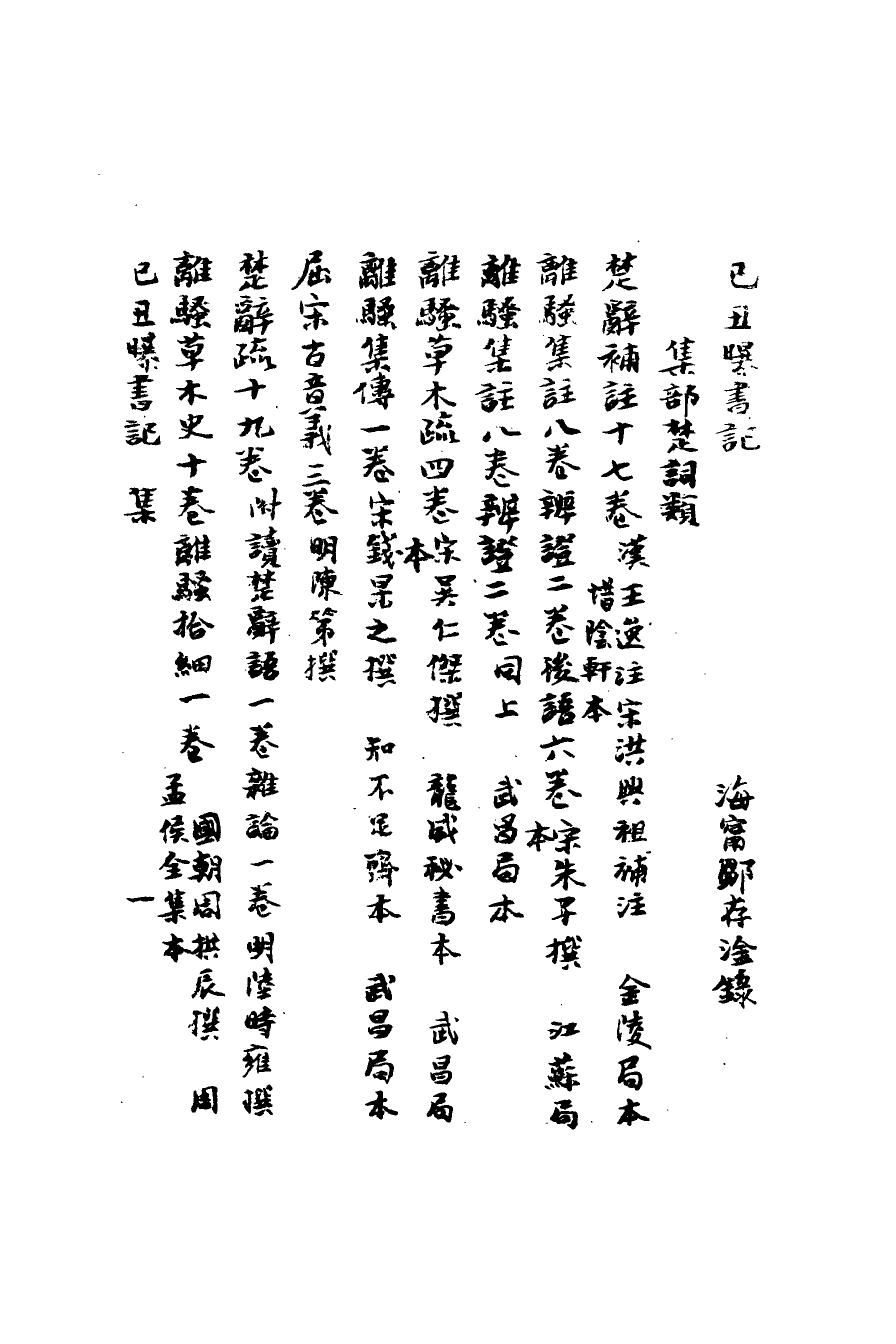 己丑曝書記　海甯鄒存淦錄
集部楚詞類
楚辭補註十七卷　漢王逸注宋洪興祖補注　金陵局本　惜陰軒本
離騷集註八卷辨證二卷後語六卷　宋朱子撰　江蘇局本
離騷集註八卷辨證二卷　同上　武昌局本
離騷草木疏四卷　宋吳仁傑撰　龍威秘書本　武昌局本
離騷集傳一卷　宋錢杲之撰　知不足齋本　武昌局本
屈宋古音義三卷　明陳第撰
楚辭疏十九卷　附讀楚辭語一卷雜論一卷　明陸時雍撰
離騷草木史十卷離騷拾細一卷　國朝周拱辰撰　周孟侯全集本
己丑曝書記　集　一